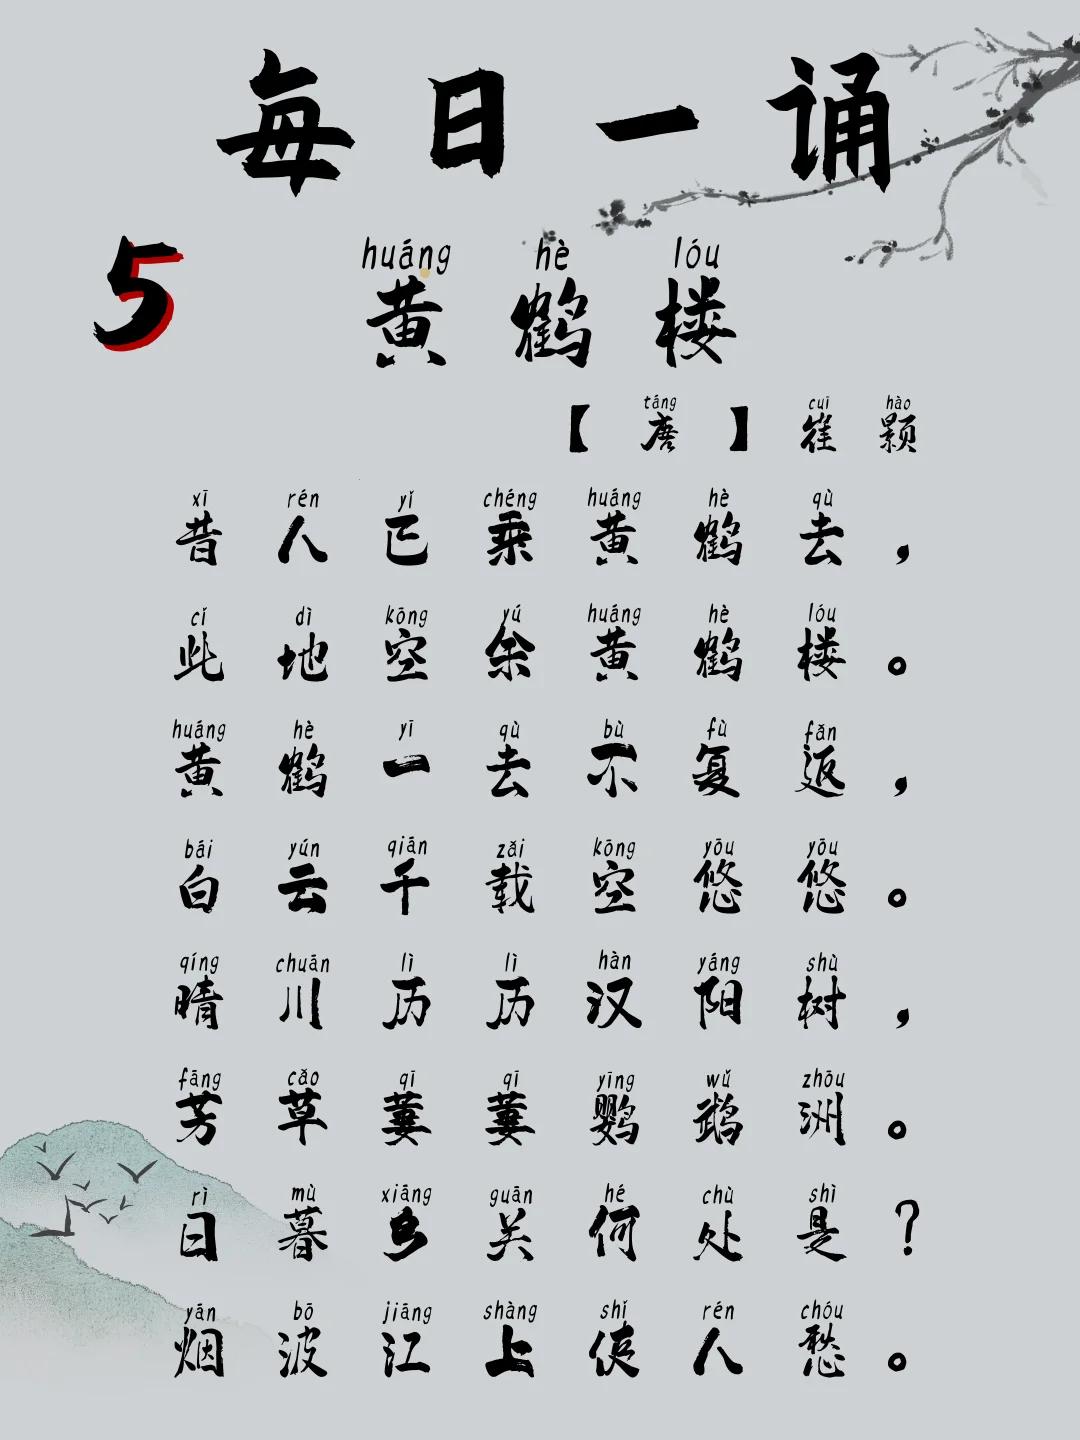 每日一诵
5
huáng hè lóu
黄鹤楼
táng cuī hào
【唐】崔颢
xī rén yǐ chéng huáng hè qù
昔人已乘黄鹤去，
cǐ dì kōng yú huáng hè lóu
此地空余黄鹤楼。
huáng hè yī qù bù fù fǎn
黄鹤一去不复返，
bái yún qiān zǎi kōng yōu yōu
白云千载空悠悠。
qíng chuān lì lì hàn yáng shù
晴川历历汉阳树，
fāng cǎo qī qī yīng wǔ zhōu
芳草萋萋鹦鹉洲。
rì mù xiāng guān hé chù shì
日暮乡关何处是？
yān bō jiāng shàng shǐ rén chóu
烟波江上使人愁。